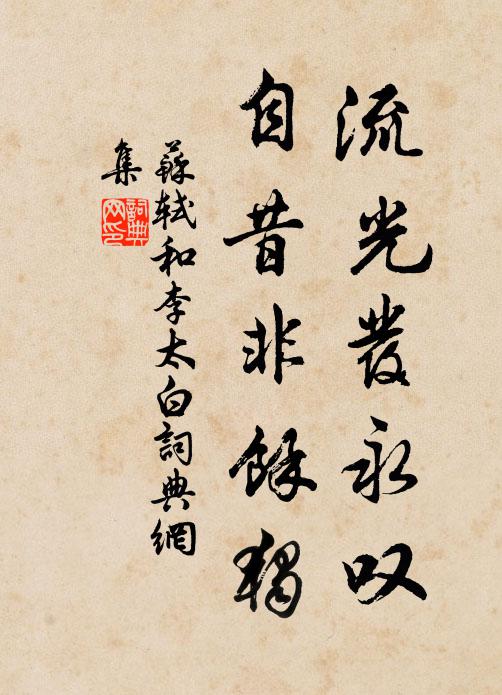 流光發永叹
自昔非餘獨
蘇軾和李太白詞典網
集
詞典网印